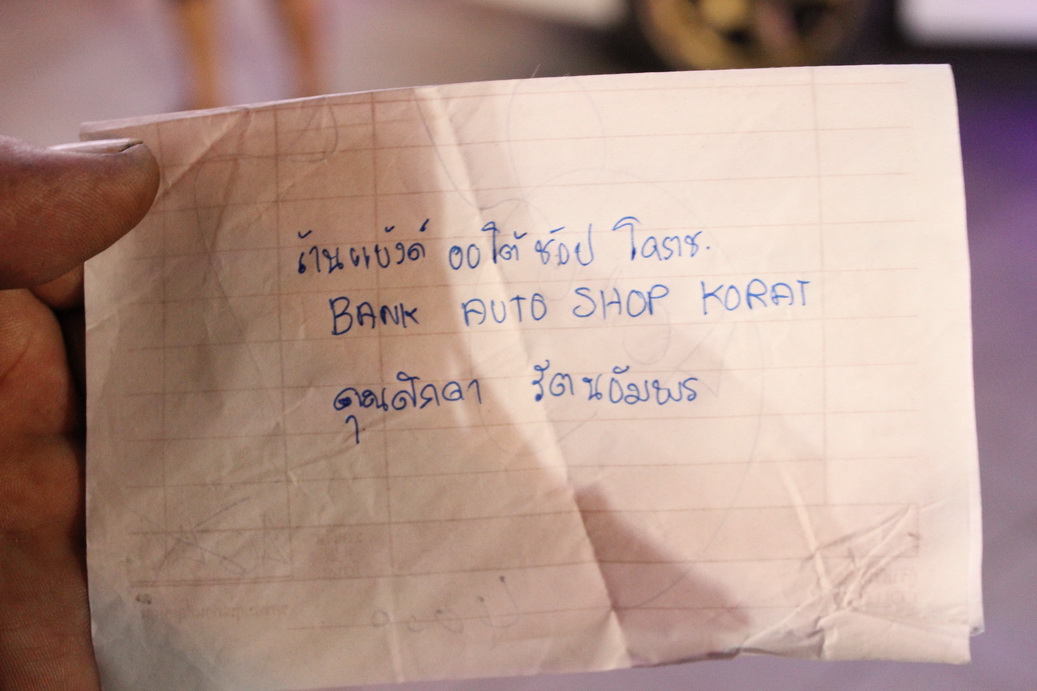 ร้านแบ้งค์ ออโต้ ช้อป โคราช.
BANK AUTO SHOP KORAT
คุณศักดา รัตนอัมพร